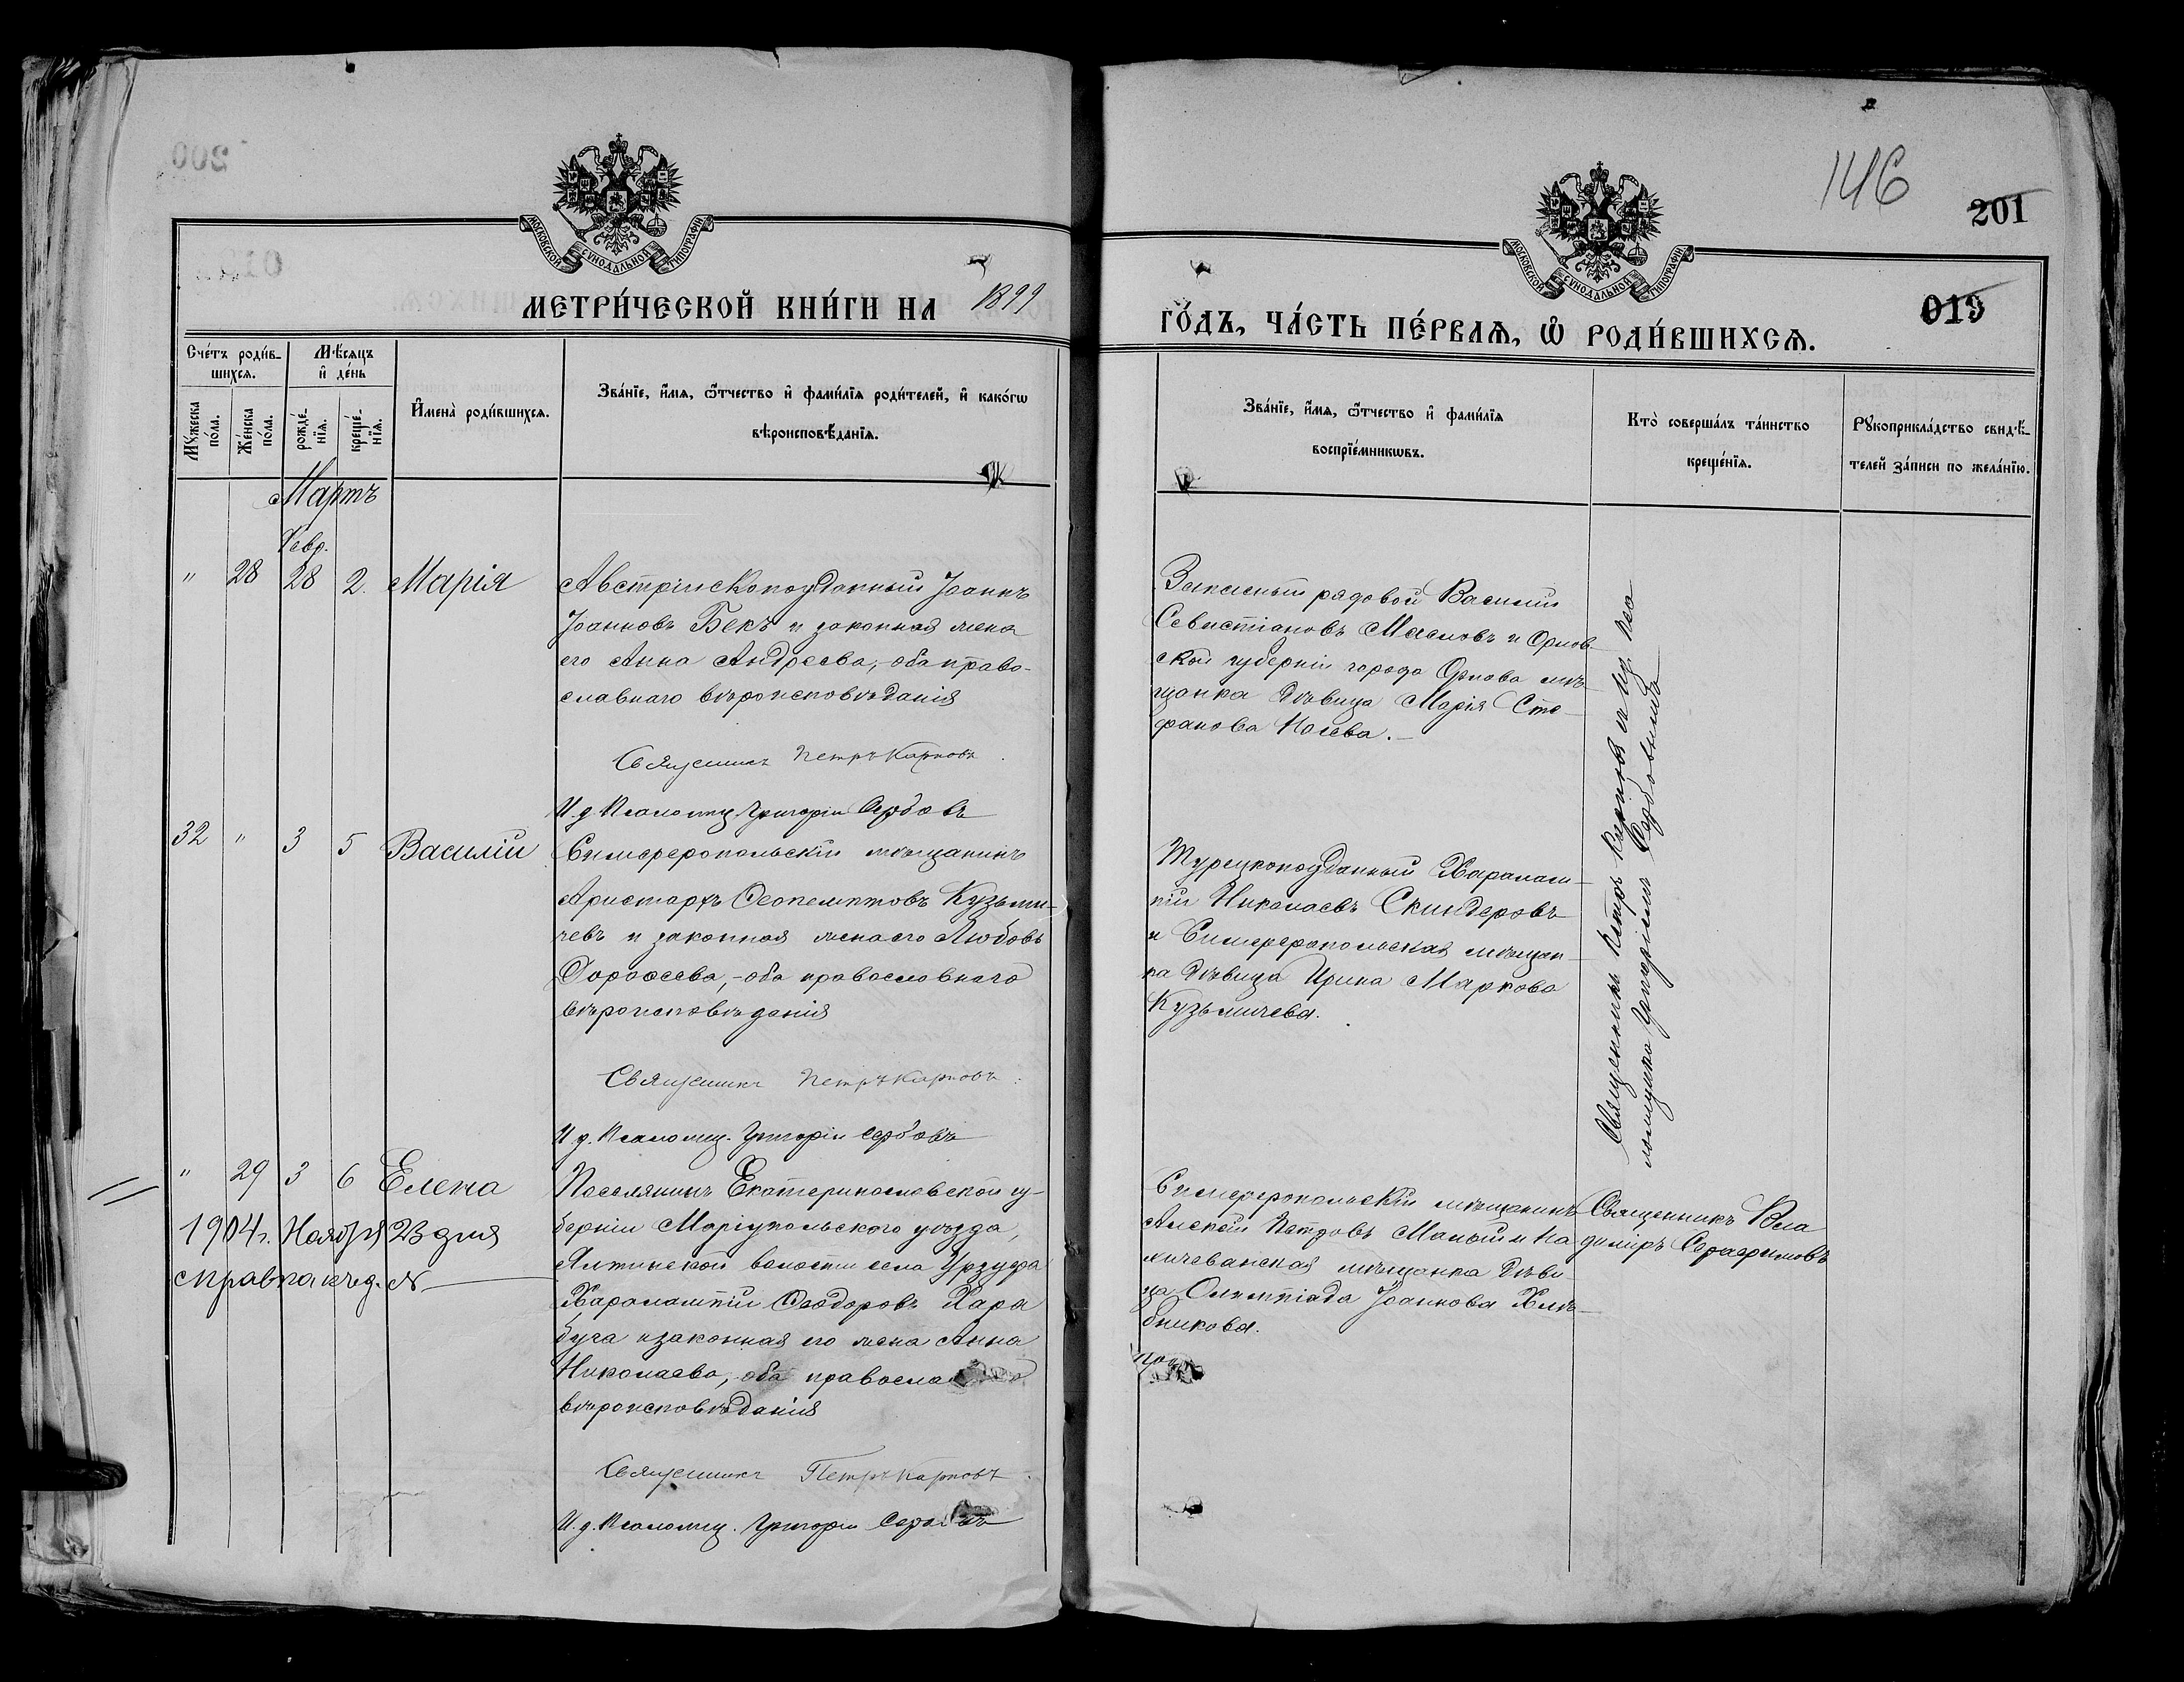 146
201
019
МОСКОВСКОЙ СѴНОДАЛЬНОЙ ТИПОГРАФІИ
МОСКОВСКОЙ СѴНОДАЛЬНОЙ ТИПОГРАФІИ
МЕТРИ́ЧЕСКОЙ КНИ́ГИ НА 1899
ГО́ДЪ, ЧА́СТЬ ПЕ́РВАѦ, Ѽ РОДИ́ВШИХСѦ.
Сче́тъ роди́в-
шихсѧ.
Мѣ́сѧцъ
и҆ де́нь
Мꙋ́жеска
по́ла.
Же́нска
по́ла.
рожде́-
нїѧ.
креще́-
нїѧ.
И҆мена̀ роди́вшихсѧ.
Зва́нїе, и҆́мѧ, ѻ҆́тчество и҆ фами́лїѧ роди́телей, и҆ како́гѡ
вѣроисповѣ́данїѧ.
Зва́нїе, и҆́мѧ, ѻ҆́тчество и҆ фами́лїѧ
воспрїе́мникѡвъ.
Кто̀ соверша́лъ та́инство
креще́нїѧ.
Рꙋкоприкла́дство свидѣ́-
телей за́писи по жела́нїю.
Мартъ
Февр.
" 28 28 2. Марія
Австрійскоподданный Іоаннъ
Іоанновъ Бекъ и законная жена
его Анна Андреева,- оба право-
славнаго вѣроисповѣданія
Священникъ Петръ Карповъ
И. д. Псаломщ. Григорій Сербовъ
Запасный рядовой Василій
Севастіановъ Масловъ и Орлов-
ской губерніи города Орлова мѣ-
щанка дѣвица Марія Сте-
фанова Носева.
Священникъ Петръ Карповъ и и. д. пса
ломщика Григорій Сербовъ
32 " 3 5 Василій
Симферопольскій мѣщанинъ
Аристархъ Ѳеопемптовъ Кузьми-
чевъ и законная жена его Любовь
Дороѳеева,- оба православнаго
вѣроисповѣданія
Священникъ Петръ Карповъ
И. д. Псаломщ. Григорій Сербовъ
Турецкоподданный Харалам-
пій Николаевъ Скиндеровъ
и Симферопольская мѣщан-
ка дѣвица Ирина Маркова
Кузьмичева.
" 29 3 6 Елена
1904 г. Ноября 23 дня
справка къ д. №
Поселянинъ Екатеринославской гу-
берніи Маріупольскаго уѣзда,
Ялтинской волости села Урзуфа
Харалампій Ѳеодоровъ Хара
буга и законная его жена Анна
Николаева,- оба православнаго
вѣроисповѣданія
Священникъ Петръ Карповъ
И. д. Псаломщ. Григорій Сербовъ
Симферопольскій мѣщанинъ
Алексѣй Петровъ Малый и На
хичеванская мѣщанка дѣви-
ца Олимпіада Іоаннова Хлѣ-
бникова.
Священникъ Вла
диміръ Серафимовъ